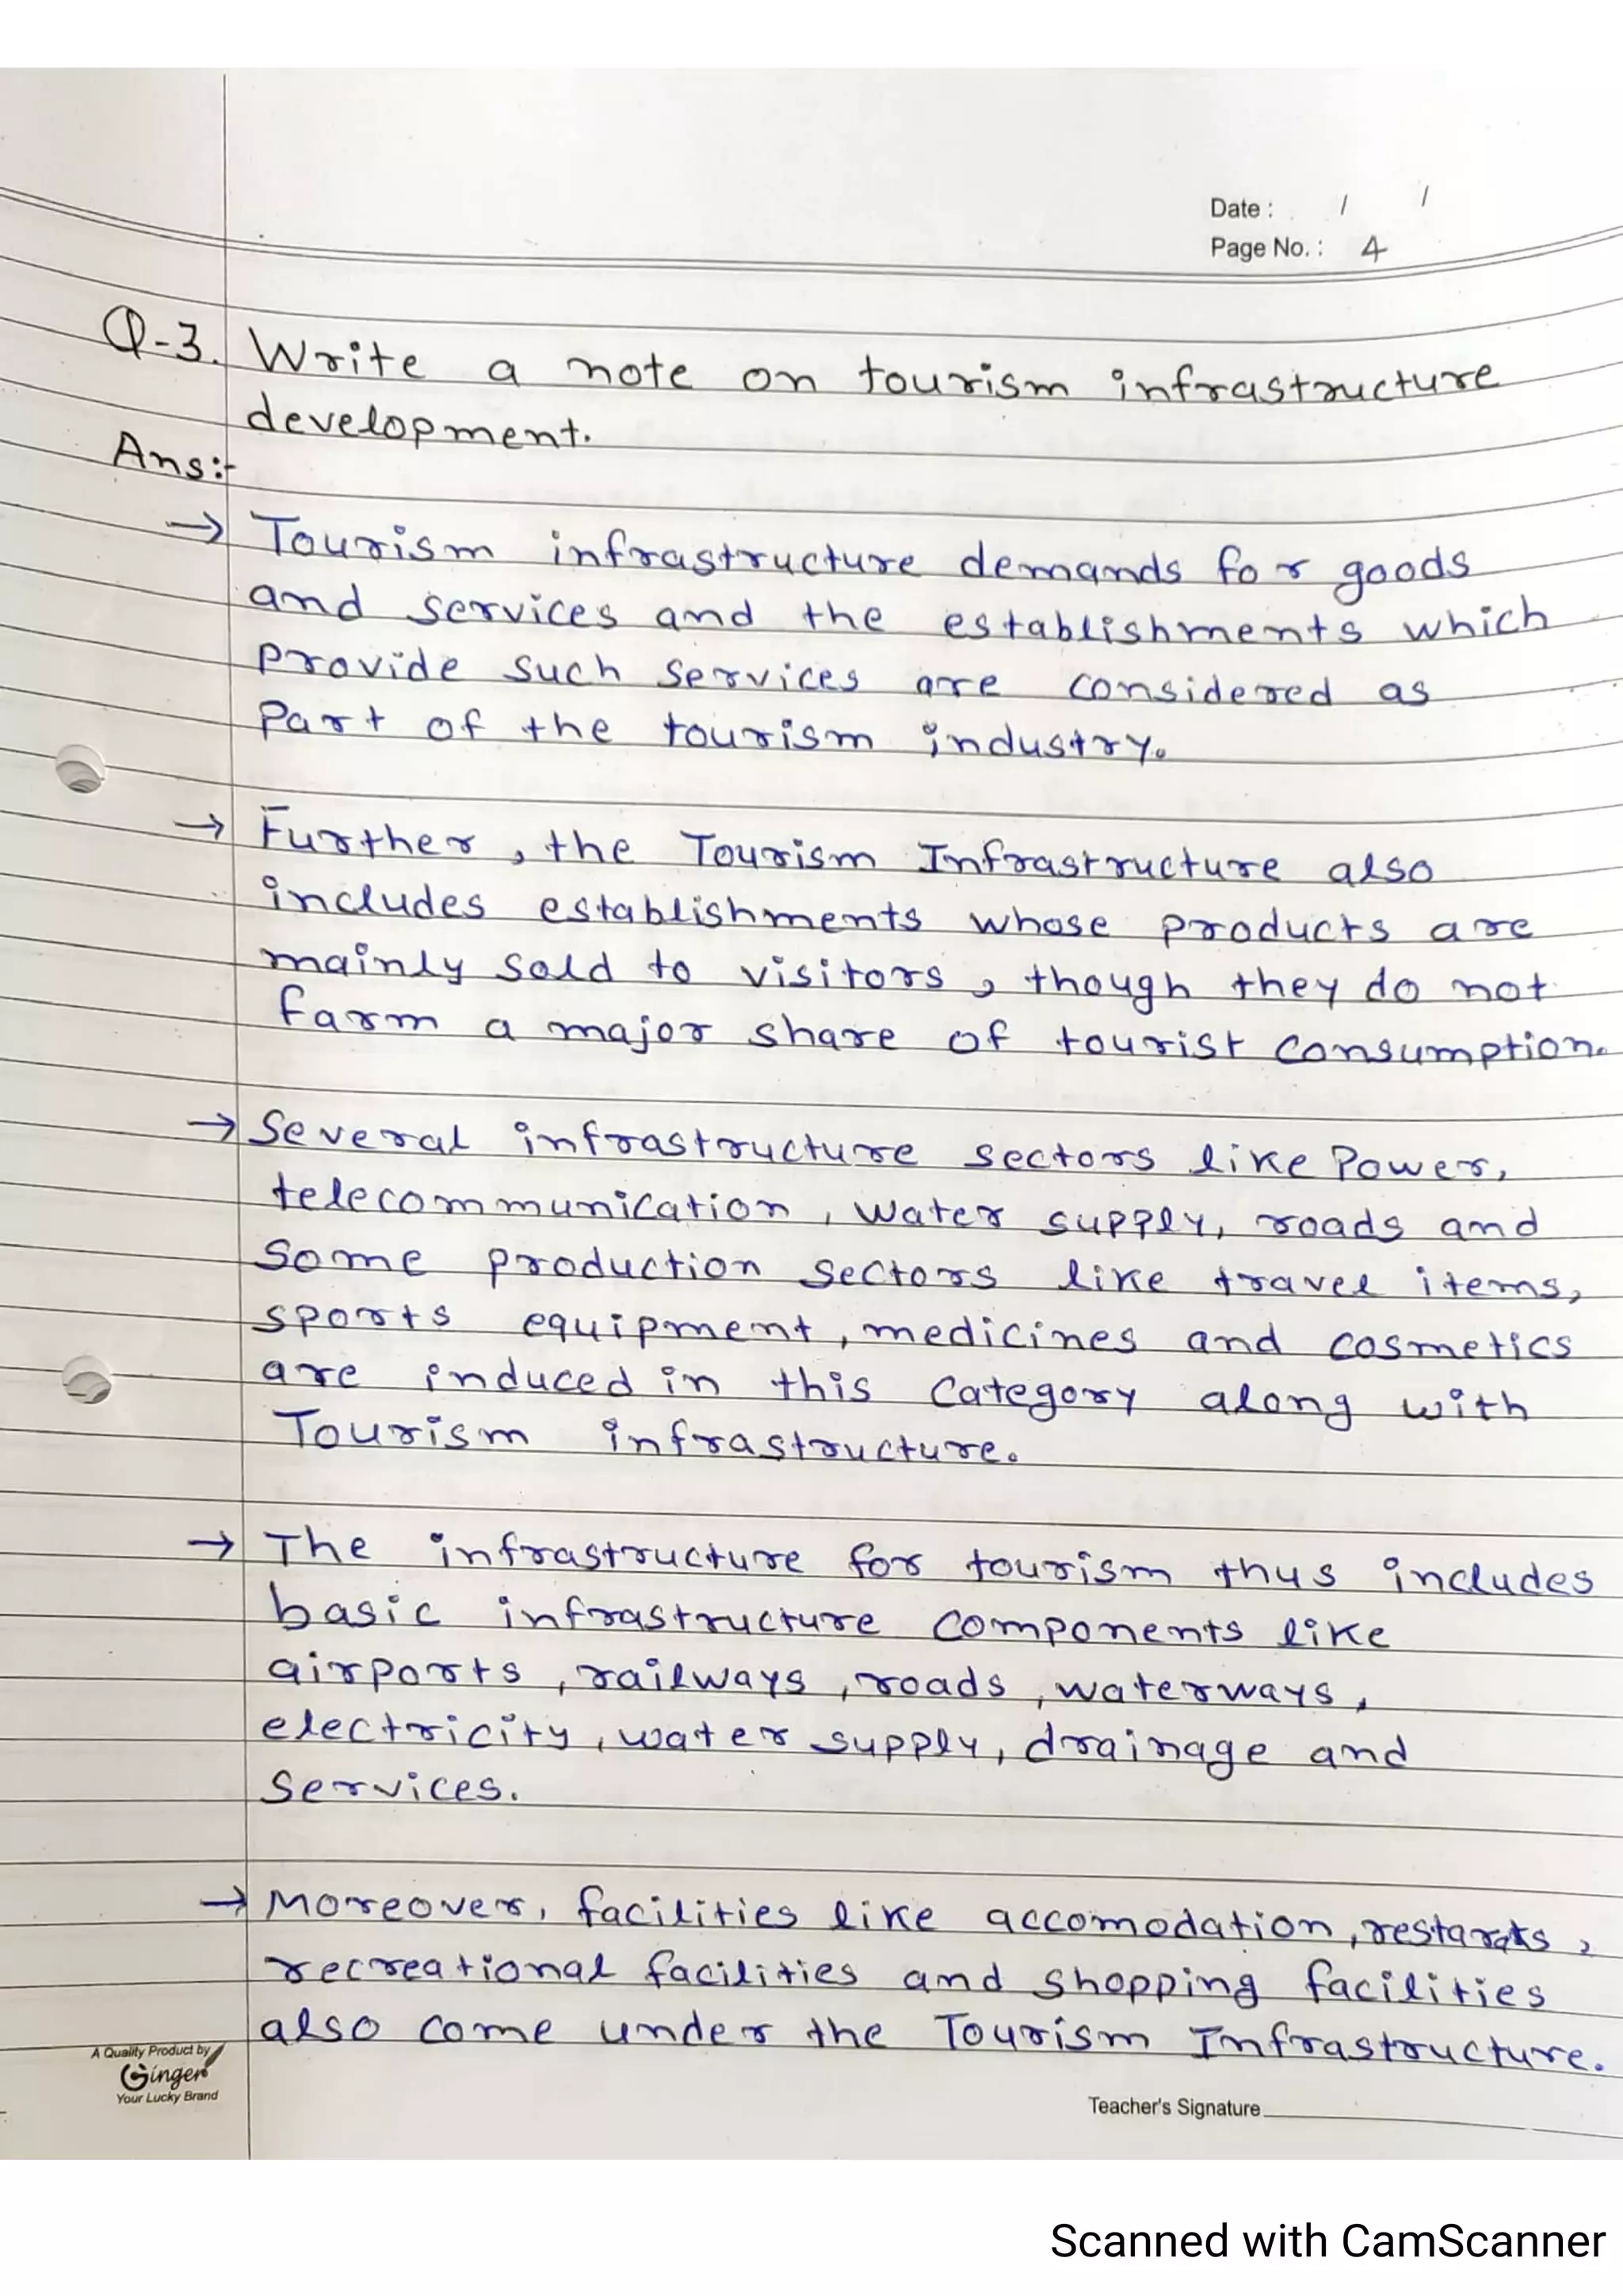 Date : / /
Page No. : 4
Q-3. Write a note on tourism infrastructure
development.
Ans:-
→ Tourism infrastructure demands for goods
and services and the establishments which
provide such services are considered as
Part of the tourism industry.
→ Further, the Tourism Infrastructure also
includes establishments whose products are
mainly sold to visitors, though they do not
farm a major share of tourist consumption.
→ Several infrastructure sectors like Power,
telecommunication, water supply, roads and
some production sectors like travel items,
sports equipment, medicines and cosmetics
are induced in this category along with
Tourism infrastructure.
→ The infrastructure for tourism thus includes
basic infrastructure components like
airports, railways, roads, waterways,
electricity, water supply, drainage and
services.
→ Moreover, facilities like accomodation,
recreational facilities and shopping facilities
also come under the Tourism Infrastructure.
A Quality Product by
Ginger
Your Lucky Brand
Teacher's Signature
Scanned with CamScanner